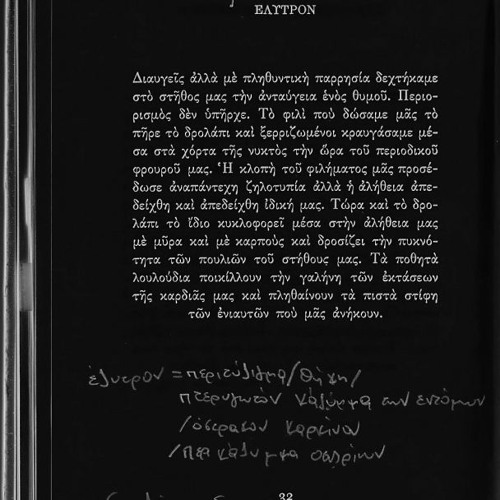 ΕΛΥΤΡΟΝ
Διαυγεῖς ἀλλὰ μὲ πληθυντικὴ παρρησία δεχτήκαμε
στὸ στῆθος μας τὴν ἀνταύγεια ἑνὸς θυμοῦ. Περιο-
ρισμὸς δὲν ὑπῆρχε. Τὸ φιλὶ ποὺ δώσαμε μᾶς τὸ
πῆρε τὸ δρολάπι καὶ ξερριζωμένοι κραυγάσαμε μέ-
σα στὰ χόρτα τῆς νυκτὸς τὴν ὥρα τοῦ περιοδικοῦ
φρουροῦ μας. Ἡ κλοπὴ τοῦ φιλήματος μᾶς προσέ-
δωσε ἀναπάντεχη ζηλοτυπία ἀλλὰ ἡ ἀλήθεια ἀπε-
δείχθη καὶ ἀπεδείχθη ἰδική μας. Τώρα καὶ τὸ δρο-
λάπι τὸ ἴδιο κυκλοφορεῖ μέσα στὴν ἀλήθεια μας
μὲ μῦρα καὶ μὲ καρποὺς καὶ δροσίζει τὴν πυκνό-
τητα τῶν πουλιῶν τοῦ στήθους μας. Τὰ ποθητὰ
λουλούδια ποικίλλουν τὴν γαλήνη τῶν ἐκτάσεων
τῆς καρδιᾶς μας καὶ πληθαίνουν τὰ πιστὰ στίφη
τῶν ἐνιαυτῶν ποὺ μᾶς ἀνήκουν.
ἔλυτρον = περιτύλιγμα/θήκη/
πτερυγωτὸν κάλυμμα των εντόμων
/ὄστρακον καρκίνου
32